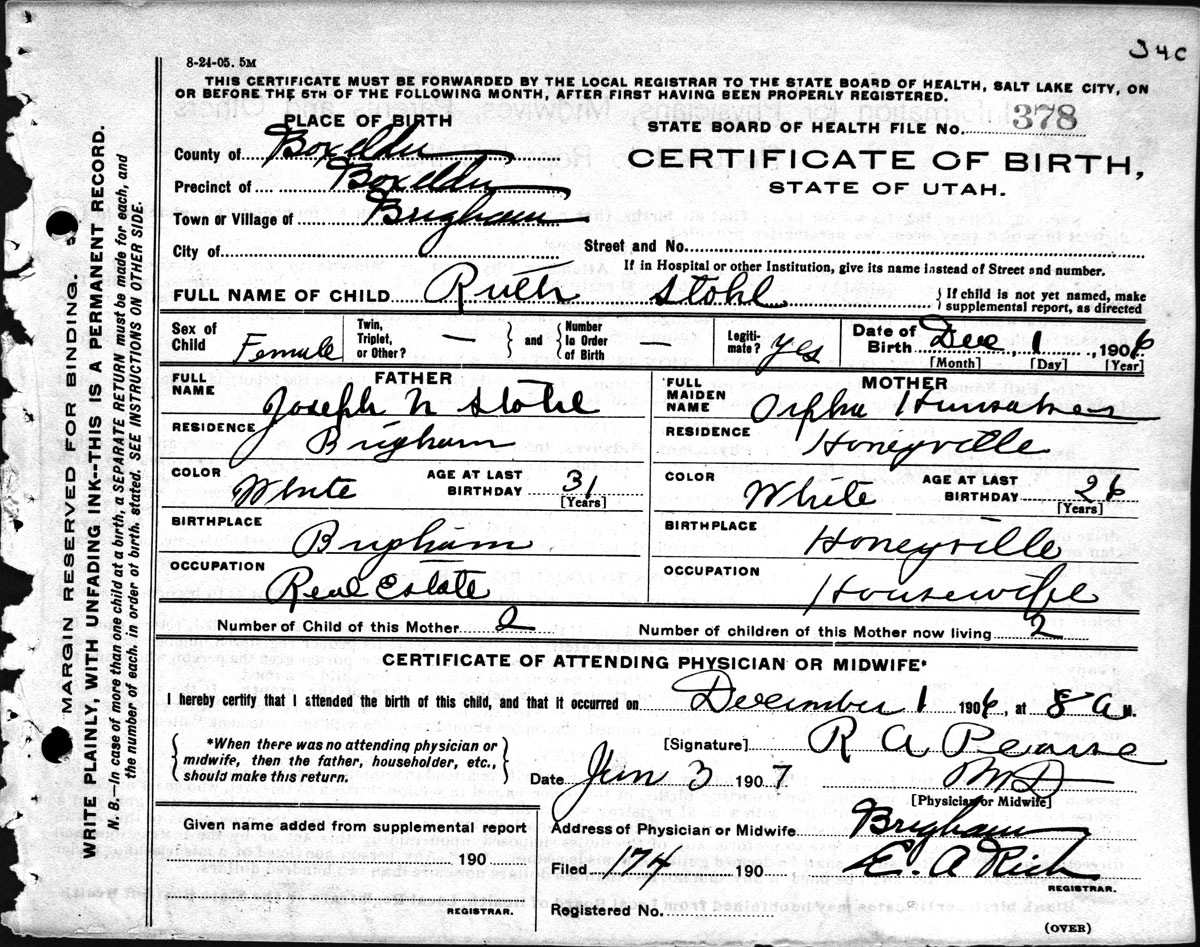 34C
8-24-05. 5M
THIS CERTIFICATE MUST BE FORWARDED BY THE LOCAL REGISTRAR TO THE STATE BOARD OF HEALTH, SALT LAKE CITY, ON
OR BEFORE THE 5TH OF THE FOLLOWING MONTH, AFTER FIRST HAVING BEEN PROPERLY REGISTERED.
PLACE OF BIRTH
STATE BOARD OF HEALTH FILE No. 378
County of Boxelder
CERTIFICATE OF BIRTH,
Precinct of Boxelder
STATE OF UTAH.
Town or Village of Brigham
City of
Street and No.
If in Hospital or other Institution, give its name instead of Street and number.
FULL NAME OF CHILD Ruth Stohl
} If child is not yet named, make supplemental report, as directed
Sex of Child Female
Twin, Triplet, or Other? —
} and { Number In Order of Birth
Legitimate? yes
Date of Birth Dec, 1, 1906
[Month] [Day] [Year]
FATHER
FULL NAME Joseph N Stohl
RESIDENCE Brigham
COLOR White
AGE AT LAST BIRTHDAY 31
[Years]
BIRTHPLACE Brigham
OCCUPATION Real Estate
MOTHER
FULL MAIDEN NAME Orpha Hunsaker
RESIDENCE Honeyville
COLOR White
AGE AT LAST BIRTHDAY 26
[Years]
BIRTHPLACE Honeyville
OCCUPATION Housewife
Number of Child of this Mother 2
Number of children of this Mother now living 2
CERTIFICATE OF ATTENDING PHYSICIAN OR MIDWIFE*
I hereby certify that I attended the birth of this child, and that it occurred on December 1 1906, at 8 a M.
{ *When there was no attending physician or
midwife, then the father, householder, etc.,
should make this return. }
[Signature] R A Pearse
Date Jan 3 1907 MD
[Physician or Midwife]
Given name added from supplemental report
190
REGISTRAR.
Address of Physician or Midwife Brigham
Filed 1/4 190 E. A Rich
REGISTRAR.
Registered No.
(OVER)
MARGIN RESERVED FOR BINDING.
WRITE PLAINLY, WITH UNFADING INK--THIS IS A PERMANENT RECORD.
N. B.—In case of more than one child at a birth, a SEPARATE RETURN must be made for each, and
the number of each, in order of birth, stated. SEE INSTRUCTIONS ON OTHER SIDE.